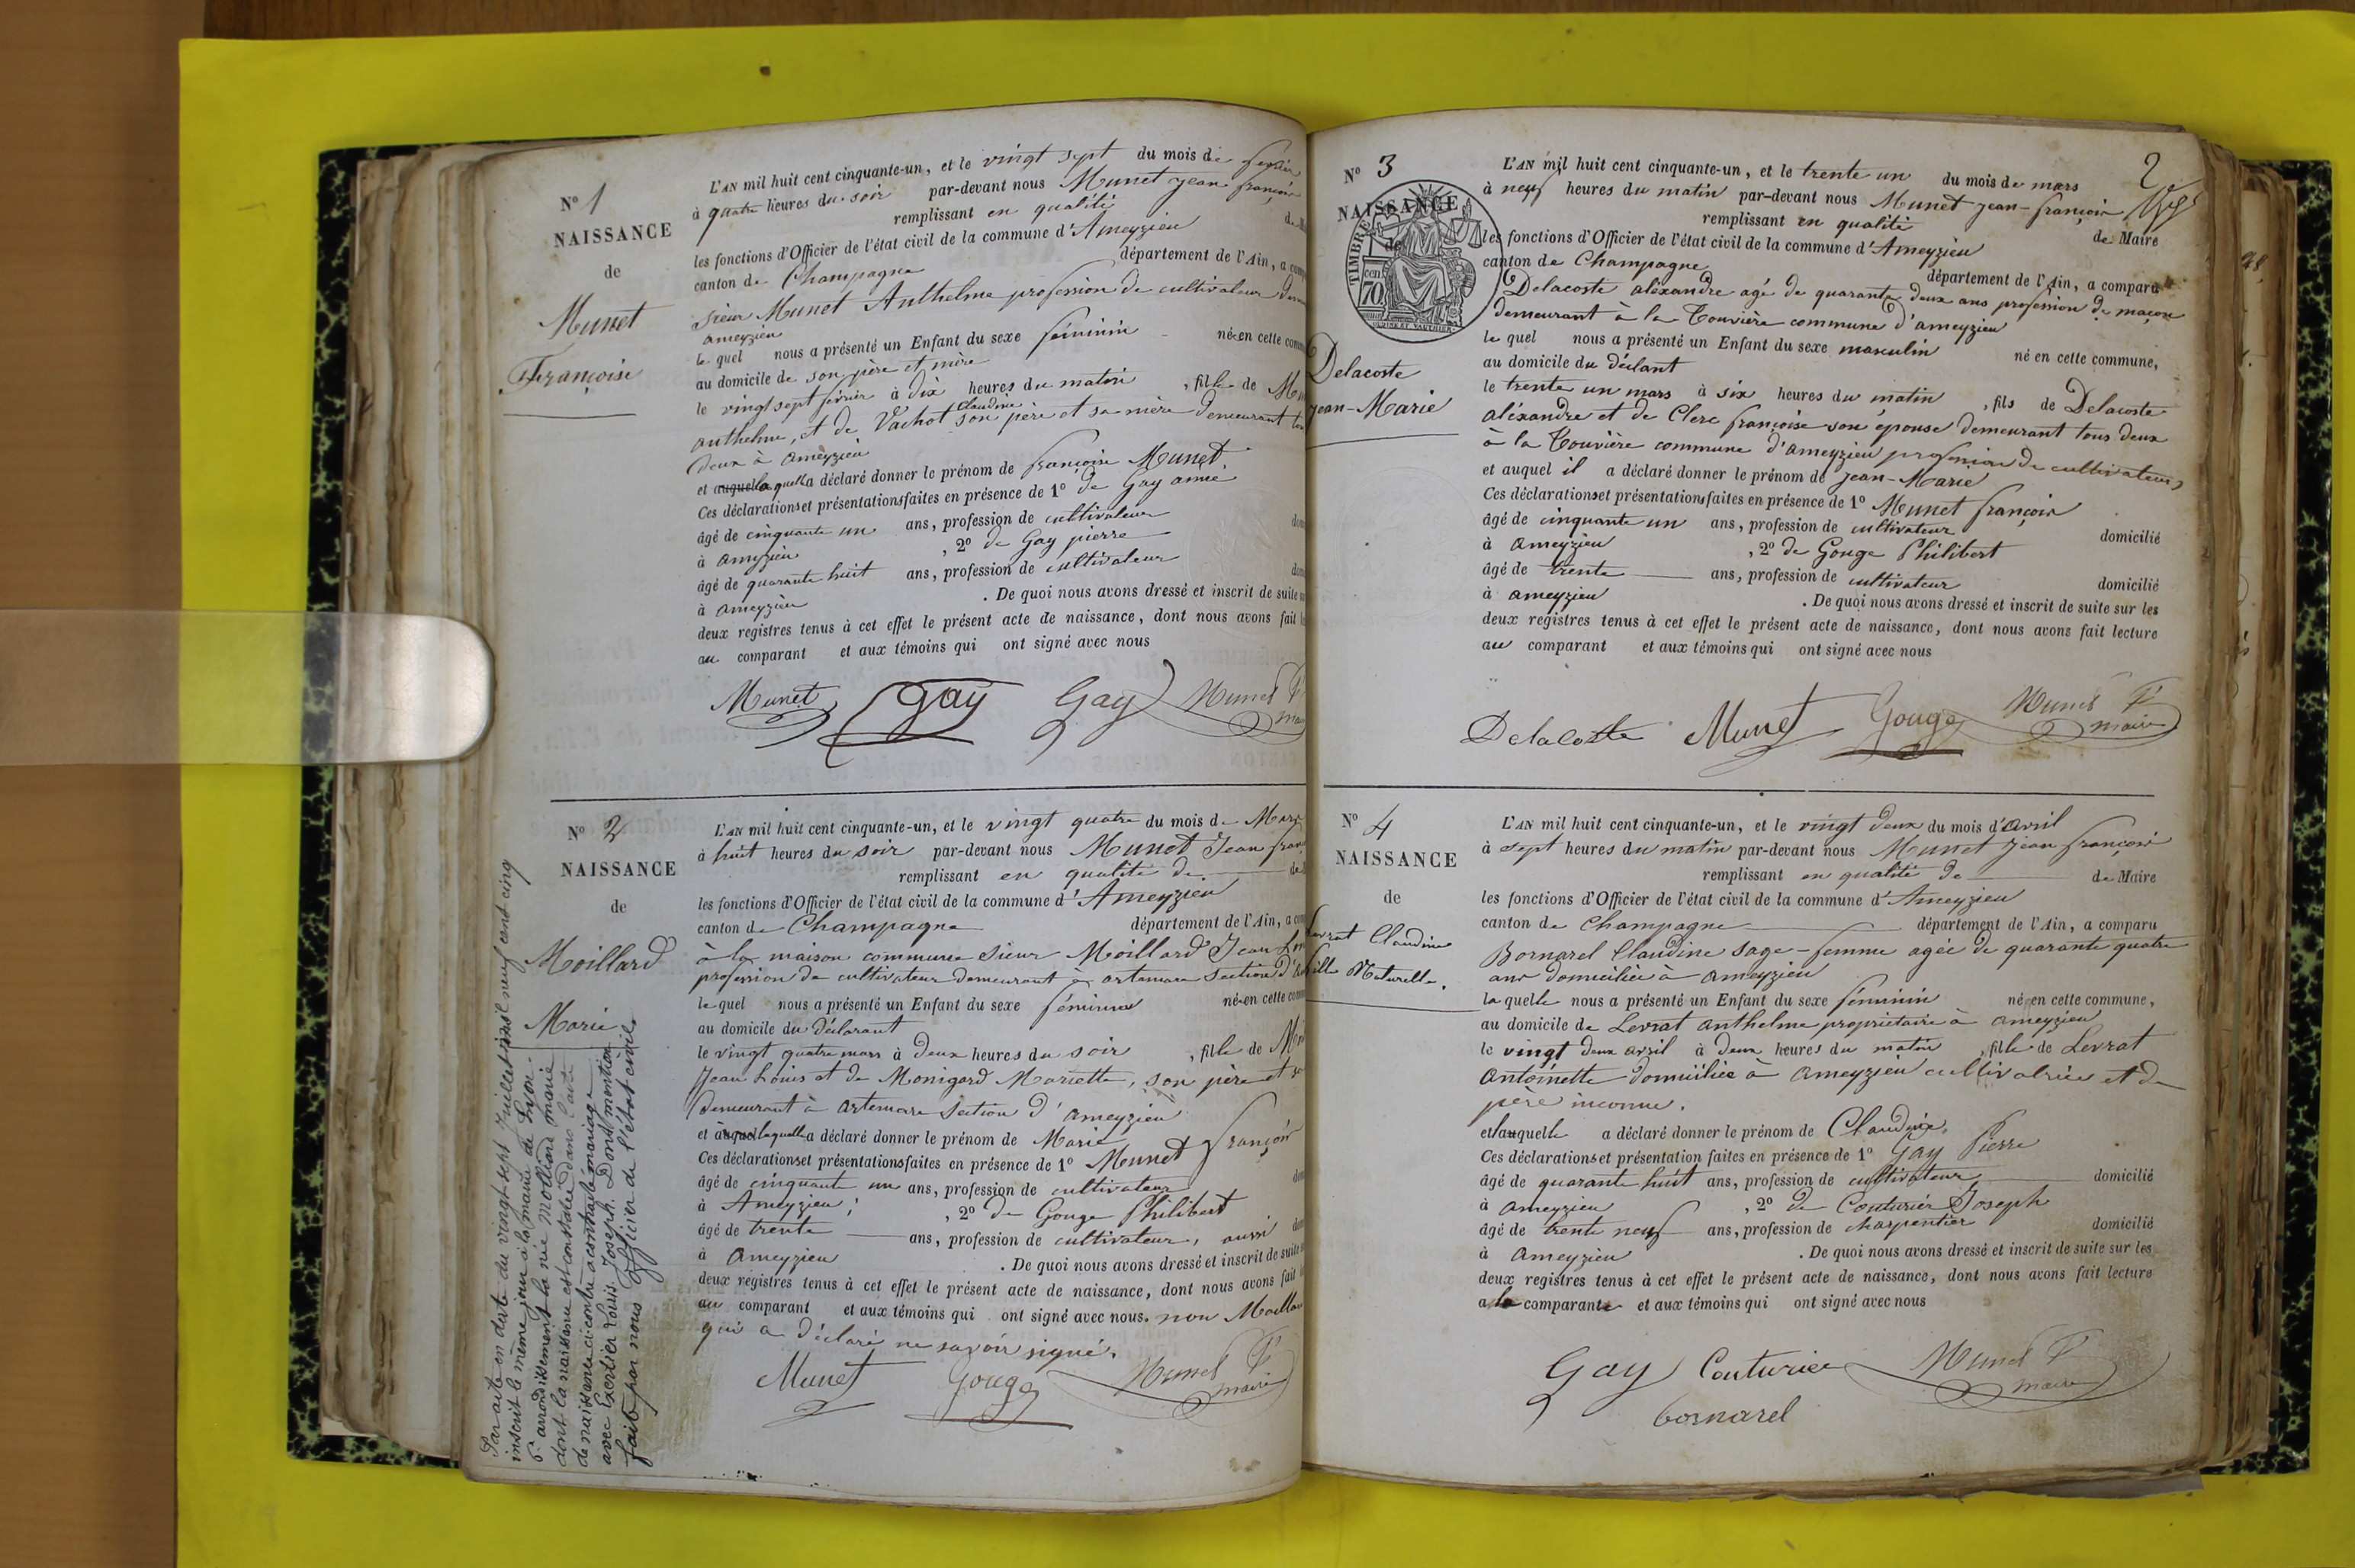 N° 1
NAISSANCE
de
Munet
Françoise
L'AN mil huit cent cinquante-un, et le vingt sept du mois de
à quatre heures du soir par-devant nous Munet Jean françois
remplissant en qualité
les fonctions d'Officier de l'état civil de la commune d'Ameyzieu
canton de Champagne département de l'Ain, a
sieur Munet Anthelme profession de cultivateur
ameyzieu
le quel nous a présenté un Enfant du sexe féminin née en cette
au domicile de son père et mère
le vingt sept février à dix heures du matin , fille de
anthelme, et de Vachot Claudine son père et sa mère demeurant
deux à ameyzieu
et auquel laquelle a déclaré donner le prénom de françoise Munet.
Ces déclarations et présentations faites en présence de 1° de Gay
âgé de cinquante un ans, profession de cultivateur
à ameyzieu , 2° de Gay pierre
âgé de quarante huit ans, profession de cultivateur
à ameyzieu . De quoi nous avons dressé et inscrit de suite
deux registres tenus à cet effet le présent acte de naissance, dont nous avons fait
au comparant et aux témoins qui ont signé avec nous
Munet Gay Gay Munet
N° 2
NAISSANCE
de
Moillard
Marie
L'AN mil huit cent cinquante-un, et le vingt quatre du mois de Mars
à huit heures du soir par-devant nous Munet Jean
remplissant en qualité de
les fonctions d'Officier de l'état civil de la commune d'Ameyzieu
canton de Champagne département de l'Ain, a
à la maison commune sieur Moillard Jean
profession de cultivateur demeurant à artemare section
le quel nous a présenté un Enfant du sexe féminin née en cette
au domicile du déclarant
le vingt quatre mars à deux heures du soir , fille de
Jean Louis et de Monigard Mariette, son père et
demeurant à artemare section d'ameyzieu
et auquel laquelle a déclaré donner le prénom de Marie
Ces déclarations et présentations faites en présence de 1° Munet François
âgé de cinquante un ans, profession de cultivateur
à Ameyzieu ; , 2° de Gouge Philibert
âgé de trente ans, profession de cultivateur, aussi
à ameyzieu . De quoi nous avons dressé et inscrit de suite
deux registres tenus à cet effet le présent acte de naissance, dont nous avons fait
au comparant et aux témoins qui ont signé avec nous. non
qui a déclaré ne savoir signé.
Munet Gouge Munet maire
Par acte en date du vingt sept Juillet mil neuf cent cinq
inscrit le même jour à la mairie de Lyon
6e arrondissement la née Molliard marie
dont la naissance est constatée dans l'acte
de naissance ci contre a contracté mariage
avec Louis Joseph. Dont mention
fait par nous Officier de l'état civil
N° 3
NAISSANCE
de
TIMBRE
cen.
70
Delacoste
Jean-Marie
2
L'AN mil huit cent cinquante-un, et le trente un du mois de mars
à neuf heures du matin par-devant nous Munet jean-françois
remplissant en qualité de Maire
les fonctions d'Officier de l'état civil de la commune d'Ameyzieu
canton de Champagne département de l'Ain, a comparu
Delacoste aléxandre agé de quarante deux ans profession de maçon
demeurant à la Touvière commune d'ameyzieu
le quel nous a présenté un Enfant du sexe masculin né en cette commune,
au domicile du déclant
le trente un mars à six heures du matin , fils de Delacoste
aléxandre et de Clerc françoise son épouse demeurant tous deux
à la Touvière commune d'ameyzieu profession de cultivateurs
et auquel il a déclaré donner le prénom de jean-Marie
Ces déclarations et présentations faites en présence de 1° Munet françois
âgé de cinquante un ans, profession de cultivateur domicilié
à ameyzieu , 2° de Gouge Philibert
âgé de trente ans, profession de cultivateur domicilié
à ameyzieu . De quoi nous avons dressé et inscrit de suite sur les
deux registres tenus à cet effet le présent acte de naissance, dont nous avons fait lecture
au comparant et aux témoins qui ont signé avec nous
Delacoste Munet Gouge Munet maire
N° 4
NAISSANCE
de
Claudine
fille Naturelle.
L'AN mil huit cent cinquante-un, et le vingt deux du mois d'avril
à sept heures du matin par-devant nous Munet Jean françois
remplissant en qualité de de Maire
les fonctions d'Officier de l'état civil de la commune d'Ameyzieu
canton de Champagne département de l'Ain, a comparu
Bornarel Claudine sage-femme agée de quarante quatre
ans domiciliée à ameyzieu
la quelle nous a présenté un Enfant du sexe féminin née en cette commune,
au domicile de Levrat anthelme propriétaire à ameyzieu
le vingt deux avril à deux heures du matin , fille de Levrat
antoinette domiciliée à ameyzieu cultivatrice et de
père inconnu.
et auquelle a déclaré donner le prénom de Claudine.
Ces déclarations et présentation faites en présence de 1° Gay Pierre
âgé de quarante huit ans, profession de cultivateur domicilié
à ameyzieu , 2° de Couturier Joseph
âgé de trente neuf ans, profession de charpentier domicilié
à ameyzieu . De quoi nous avons dressé et inscrit de suite sur les
deux registres tenus à cet effet le présent acte de naissance, dont nous avons fait lecture
a la comparante et aux témoins qui ont signé avec nous
Gay Couturier Munet maire
bornarel